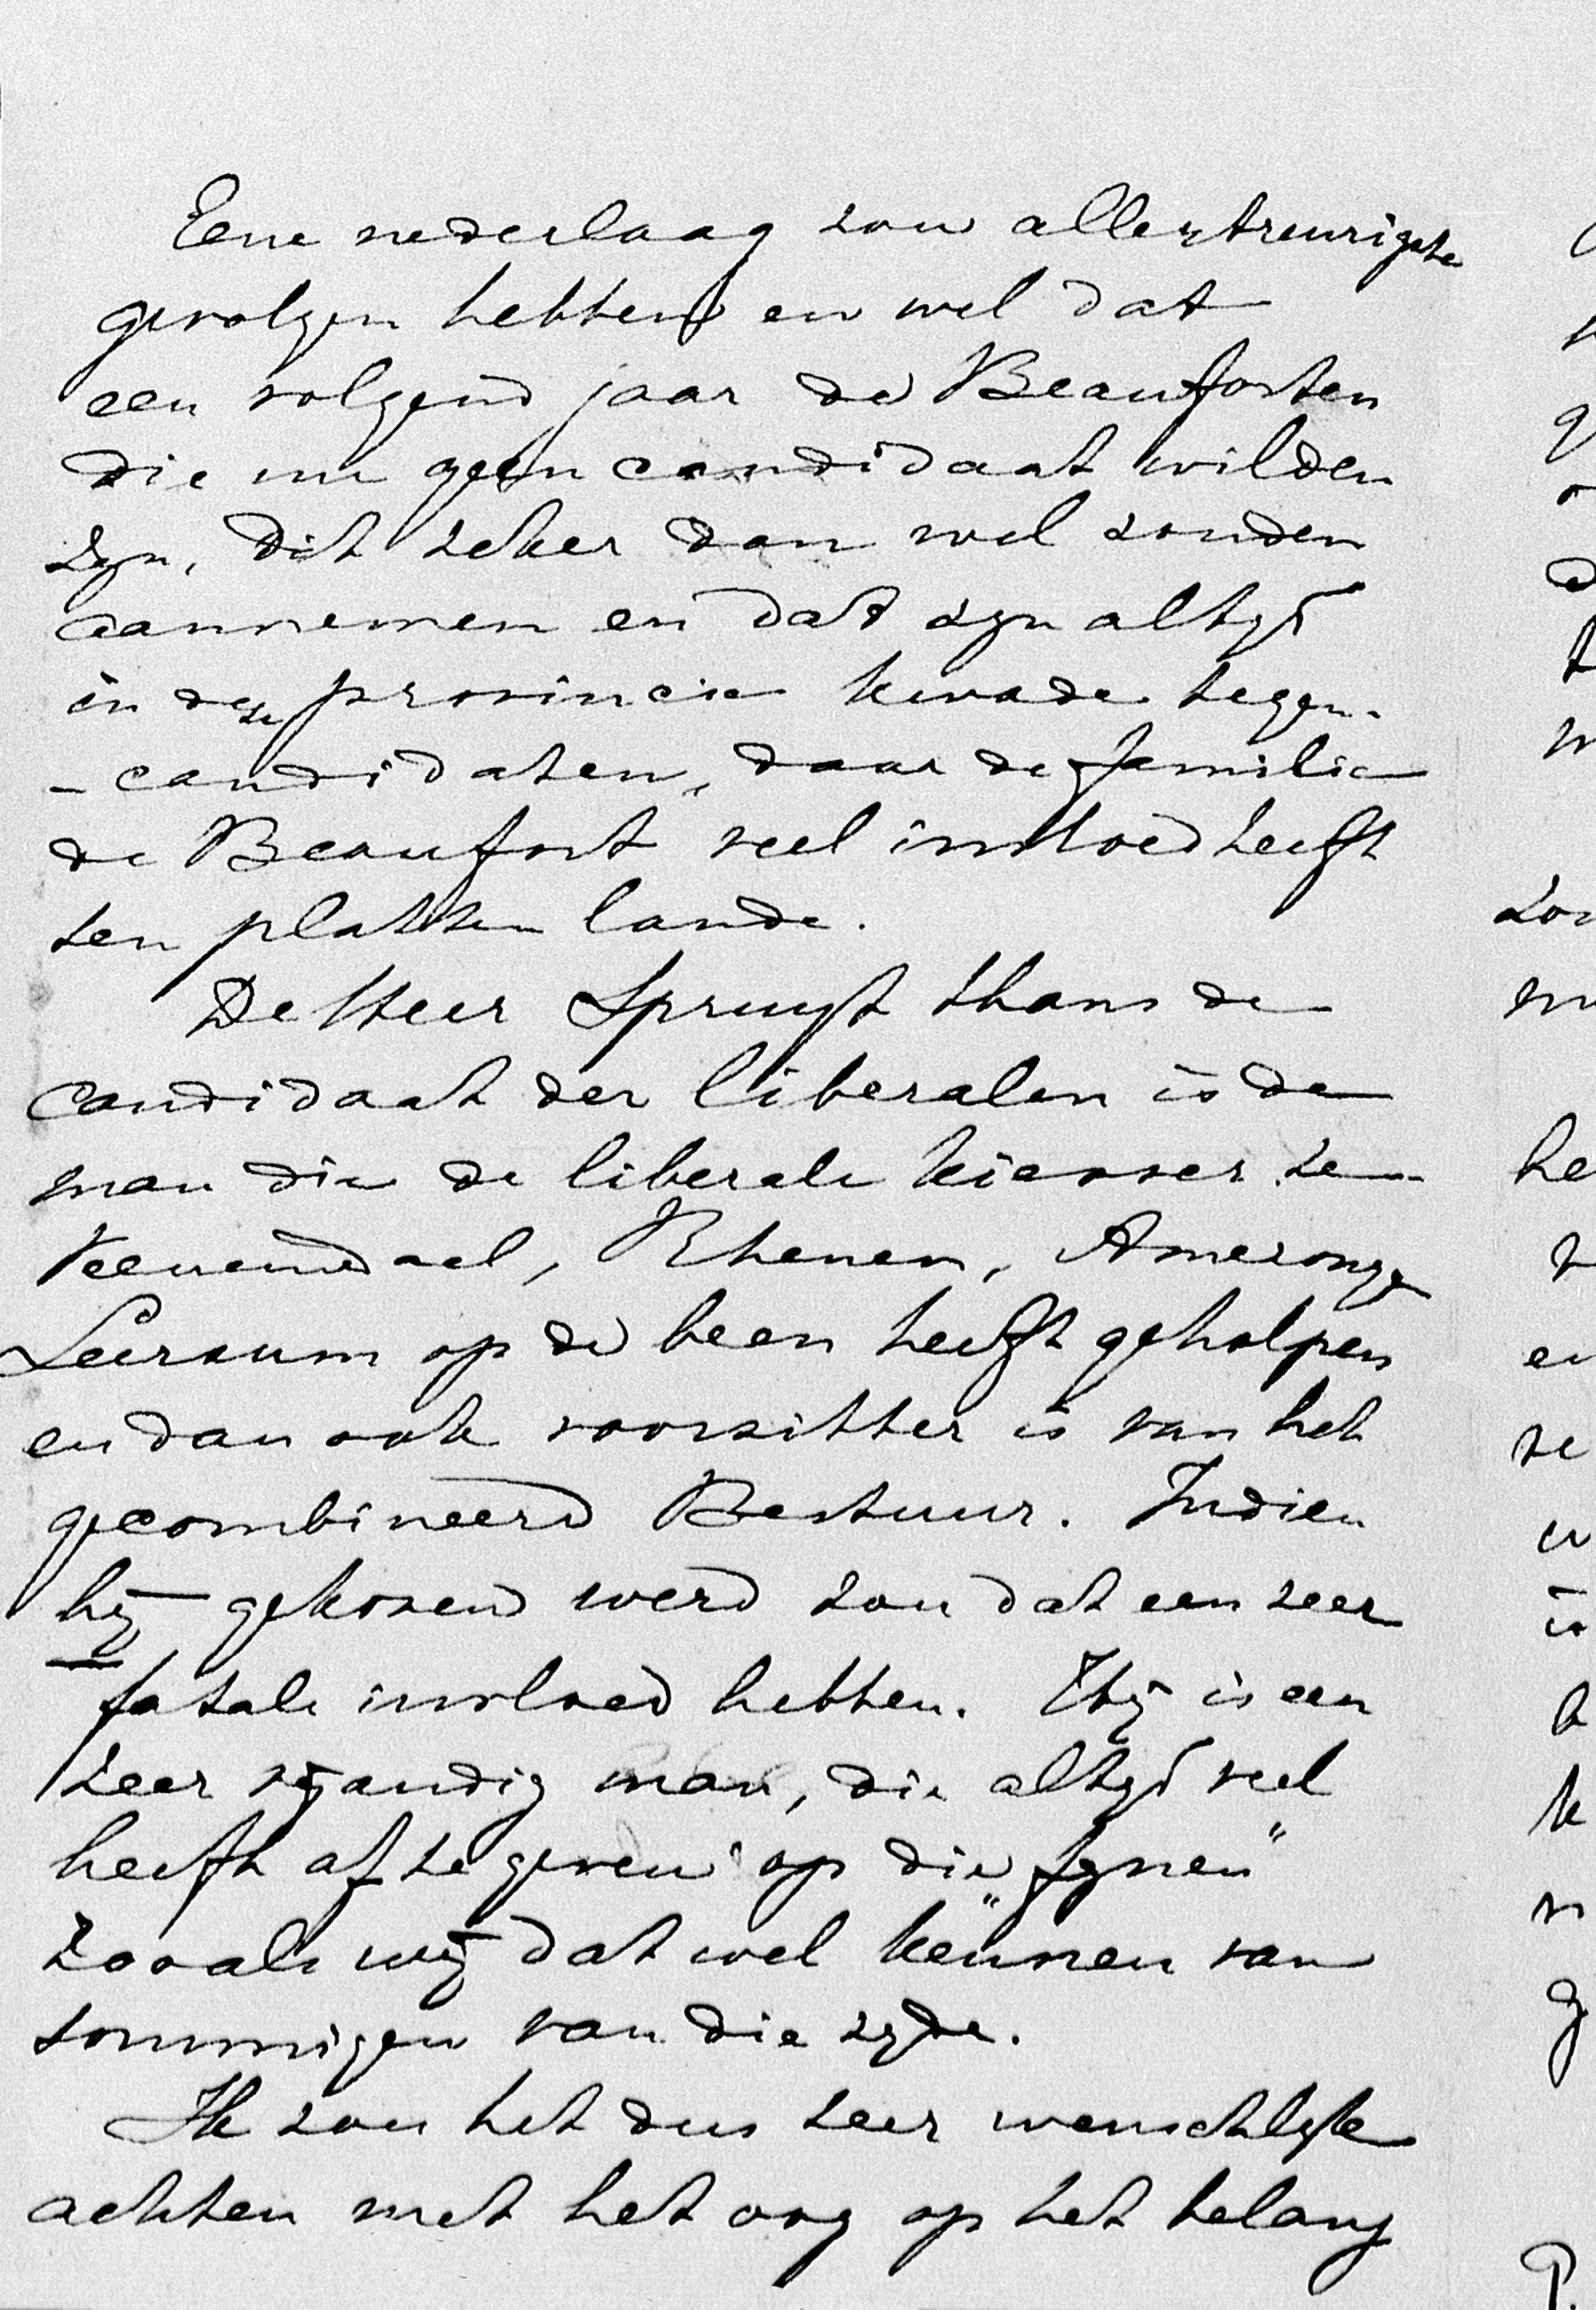 Eene nederlaag zou allertreurigste
gevolgen hebben en wel dat
een volgend jaar de Beauforten
die nu geen candidaat wilden
zyn, dit zeker dan wel zouden
aannemen en dat zyn altyd
in deze provincie kwade tegen-
-candidaten, daar de familie
de Beaufort veel invloed heeft
ten platten lande.
De Heer Spruyt thans de
candidaat der liberalen is de
man die de liberale kiesver. te
Veenendaal, Rhenen, Amerongen
Leersum op de been heeft geholpen
en dan ook voorzitter is van het
gecombineerd Bestuur. Indien
hij gekozen werd zou dat een zeer
fatale invloed hebben. Hij is een
zeer vijandig man, die altyd veel
heeft af te geven op die „fynen"
zooals wij dat wel kennen van
sommigen van die zyde.
Ik zou het dus zeer wenschlyk
achten met het oog op het belang